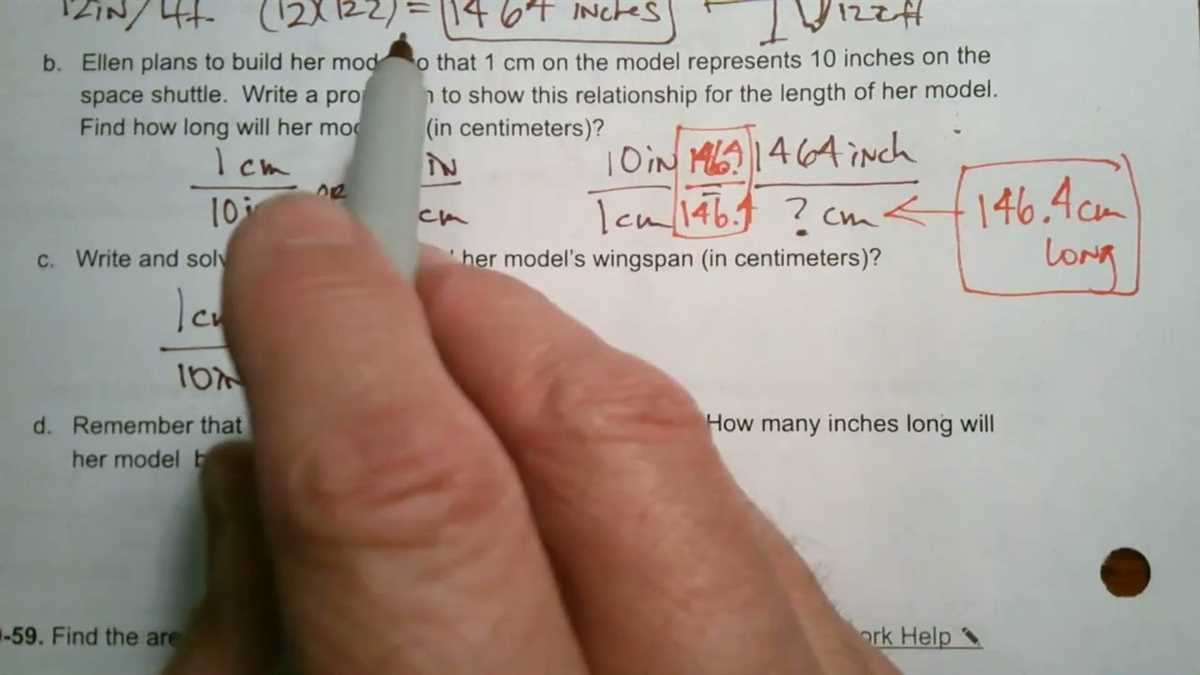 12in/1ft (12)(122) = 1464 inches 122ft
b. Ellen plans to build her mod o that 1 cm on the model represents 10 inches on the
space shuttle. Write a pro n to show this relationship for the length of her model.
Find how long will her mo (in centimeters)?
1 cm IN 10in 146.4 1464 inch
10i OR cm 1cm 146.4 ? cm 146.4cm
LONG
c. Write and solv her model's wingspan (in centimeters)?
1c
10in
d. Remember that How many inches long will
her model b
-59. Find the are ork Help